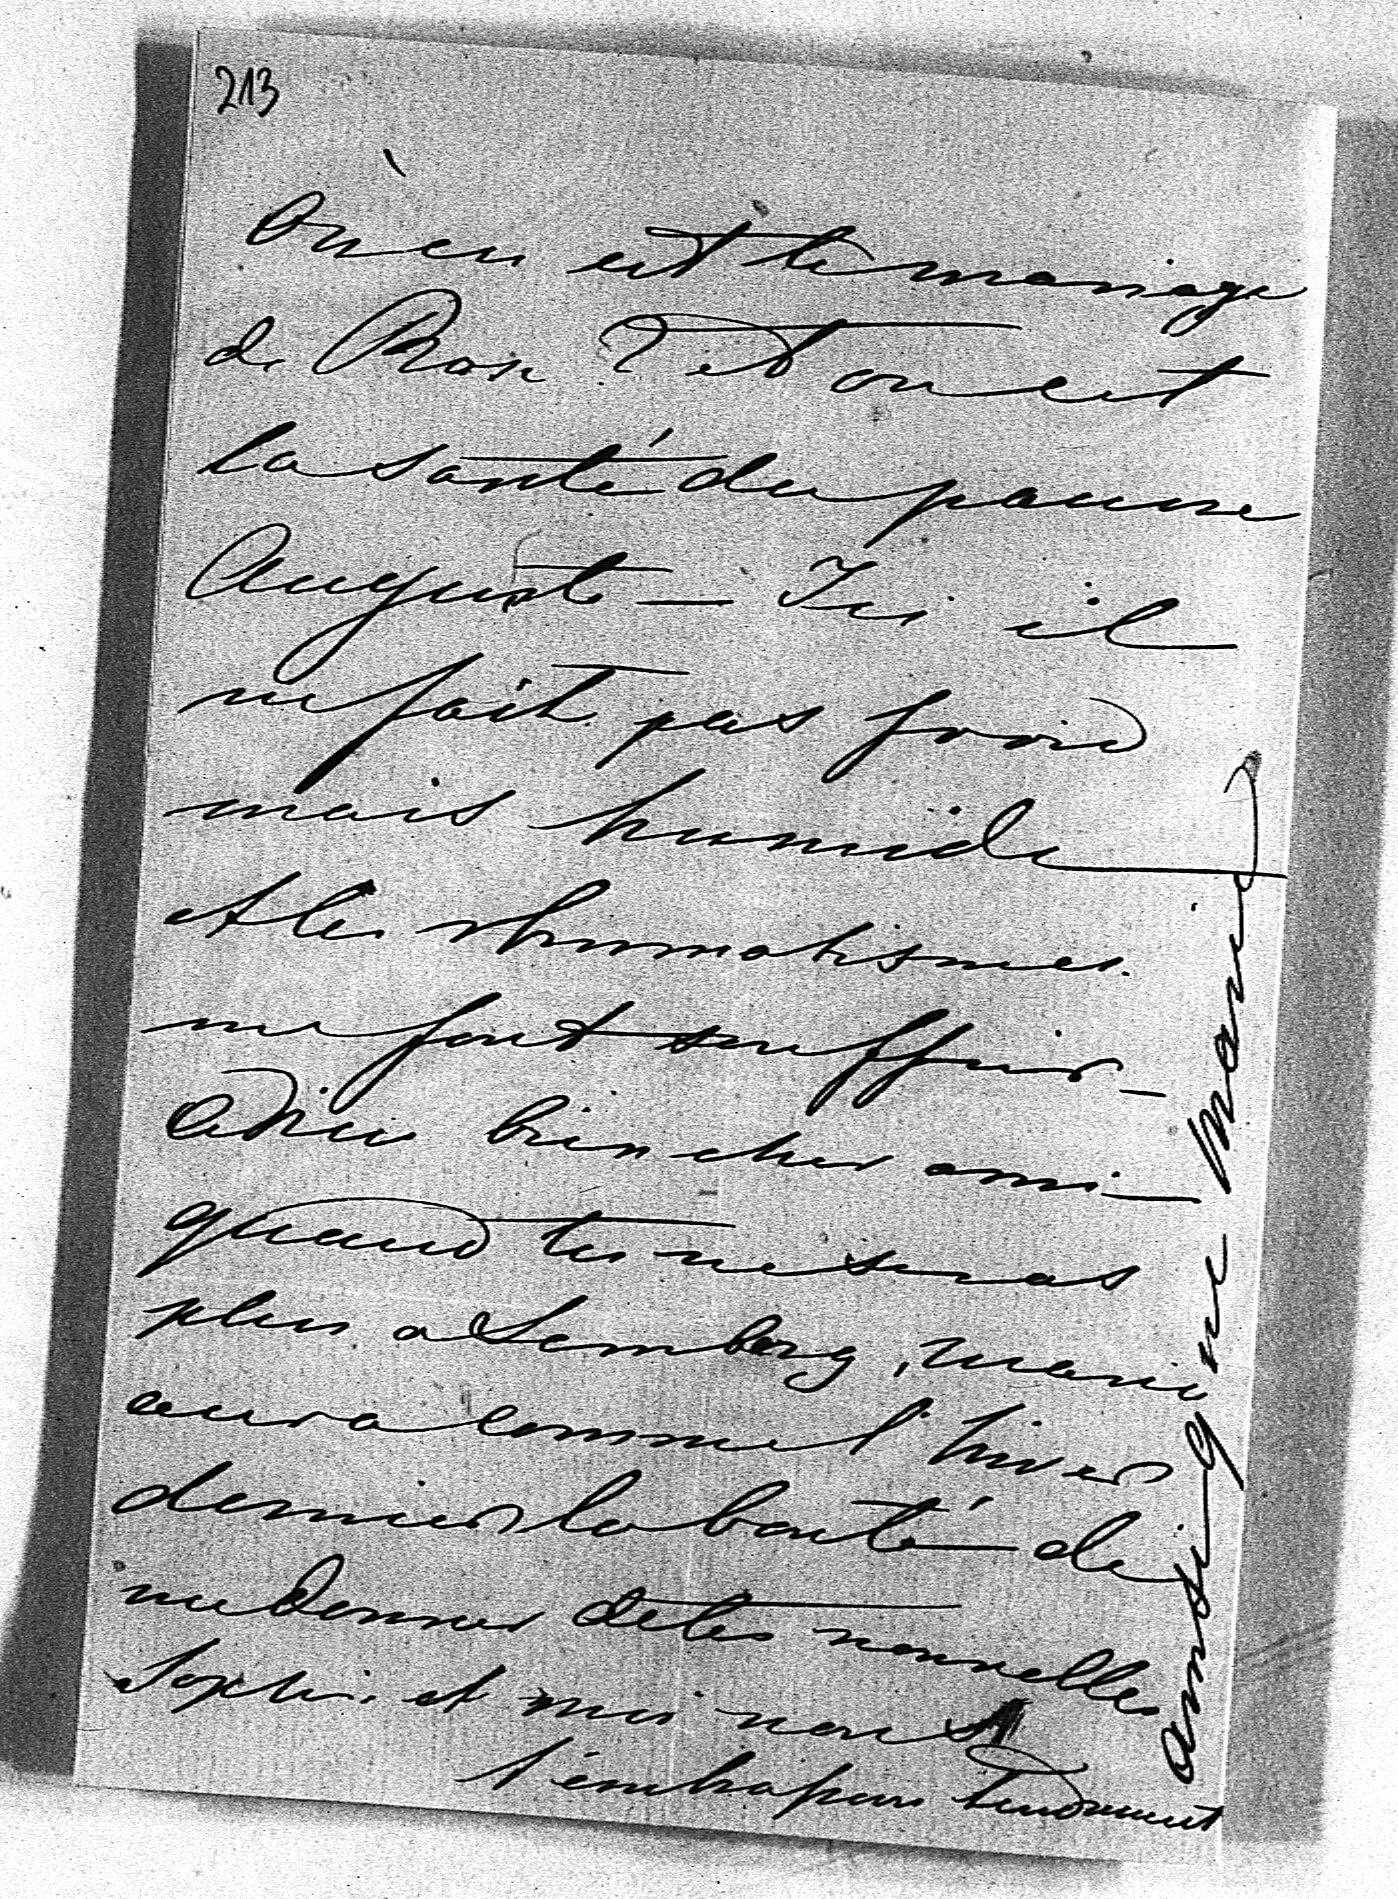 213
Où en est le mariage
de Rose ? et où est
la santé du pauvre
Auguste — Ici il
ne fait pas froid
mais humide
et les rhumatismes
me font souffrir —
Adieu bien cher ami —
quand tu ne seras
plus a Lemberg, Marie
aura comme l'hiver
dernier la bonté de
me donner de tes nouvelles
Sophie et moi nous
t'embrassons tendrement
ainsi que Marie